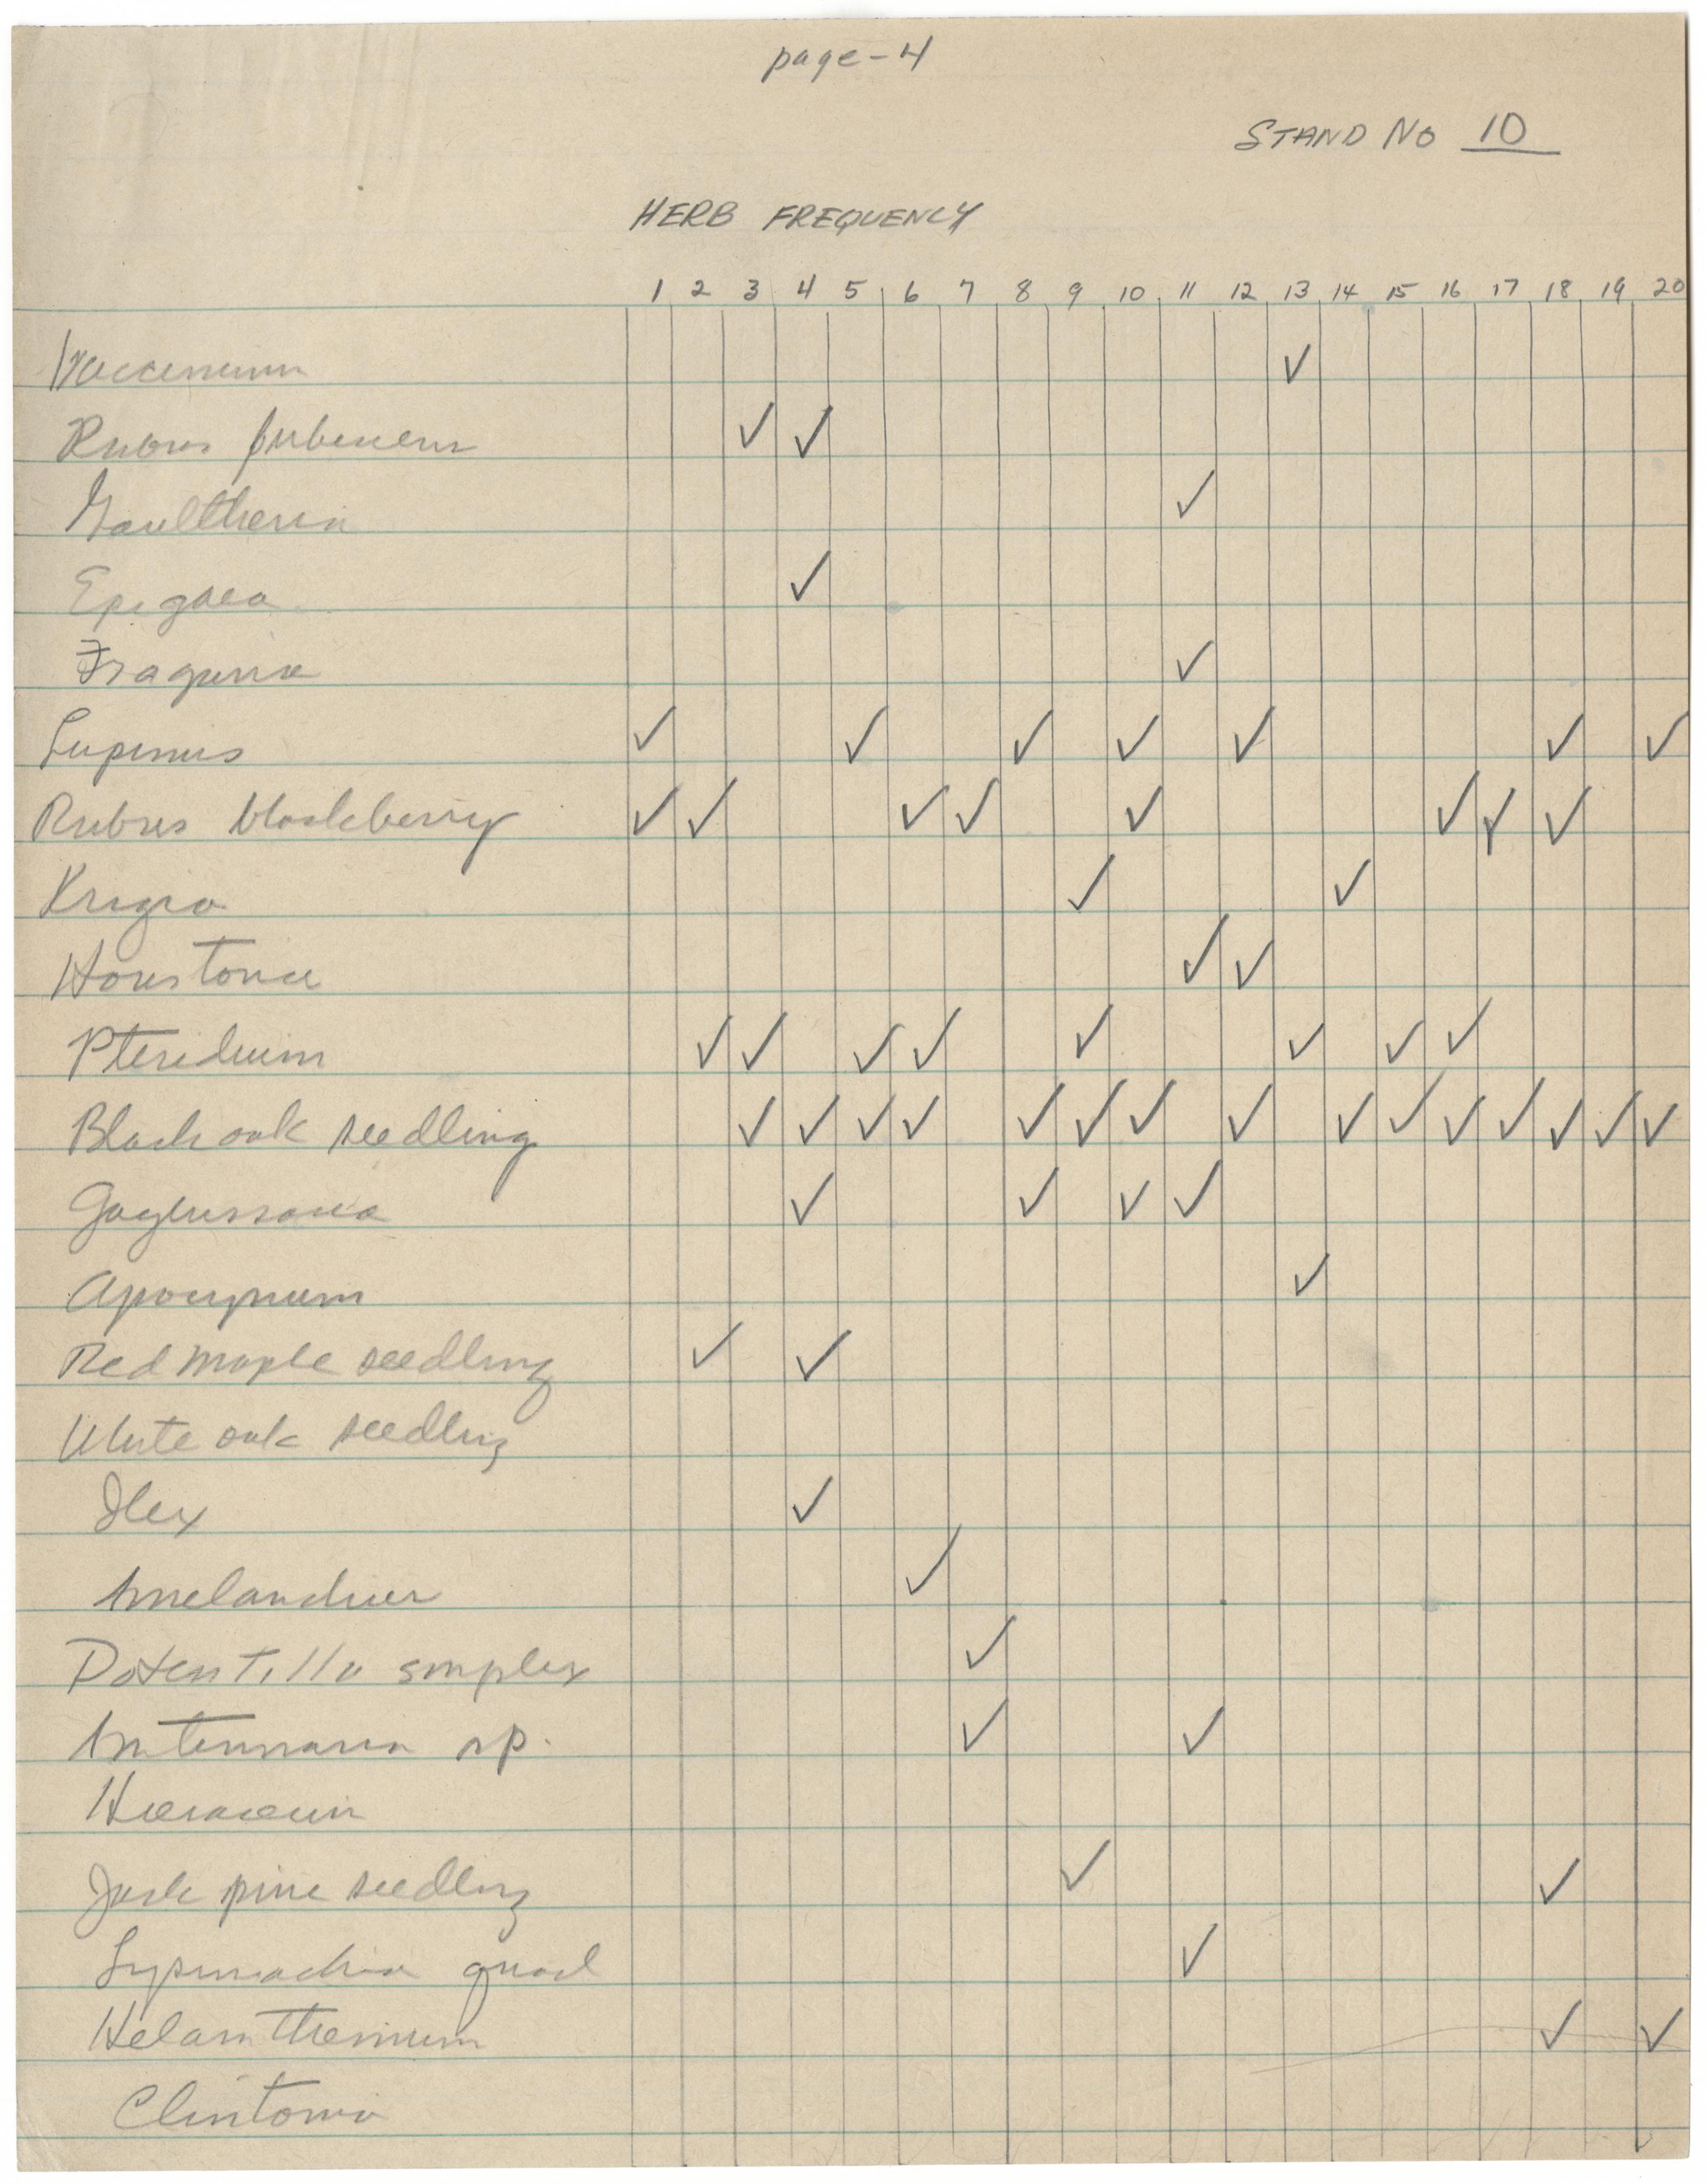 page-4
STAND NO 10
HERB FREQUENCY
1 2 3 4 5 6 7 8 9 10 11 12 13 14 15 16 17 18 19 20
Vaccinium ✓
Rubus pubescens ✓ ✓
Gaultheria ✓
Epigaea ✓
Fragaria ✓
Lupinus ✓ ✓ ✓ ✓ ✓ ✓ ✓
Rubus blackberry ✓ ✓ ✓ ✓ ✓ ✓ ✓ ✓
Krigia ✓ ✓
Houstonia ✓ ✓
Pteridium ✓ ✓ ✓ ✓ ✓ ✓ ✓ ✓
Black oak seedling ✓ ✓ ✓ ✓ ✓ ✓ ✓ ✓ ✓ ✓ ✓ ✓ ✓ ✓ ✓
Gaylussacia ✓ ✓ ✓ ✓
Apocynum ✓
Red maple seedling ✓ ✓
White oak seedling
Ilex ✓
Amelanchier ✓
Potentilla simplex ✓
Antennaria sp. ✓ ✓
Hieracium
Jack pine seedling ✓ ✓
Lysimachia quad ✓
Helianthemum ✓ ✓
Clintonia